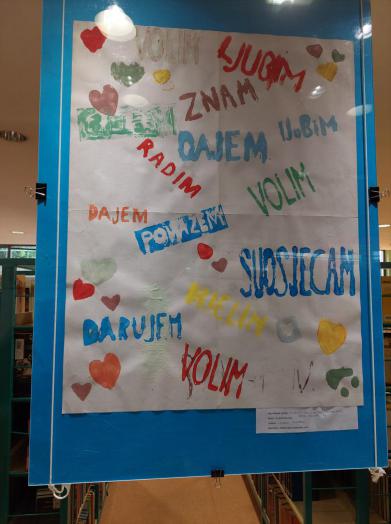 VOLIM
LJUBIM
ZNAM
DAJEM
LJUBIM
RADIM
VOLIM
DAJEM
POMAŽEM
SUOSJEĆAM
DARUJEM
VOLIM